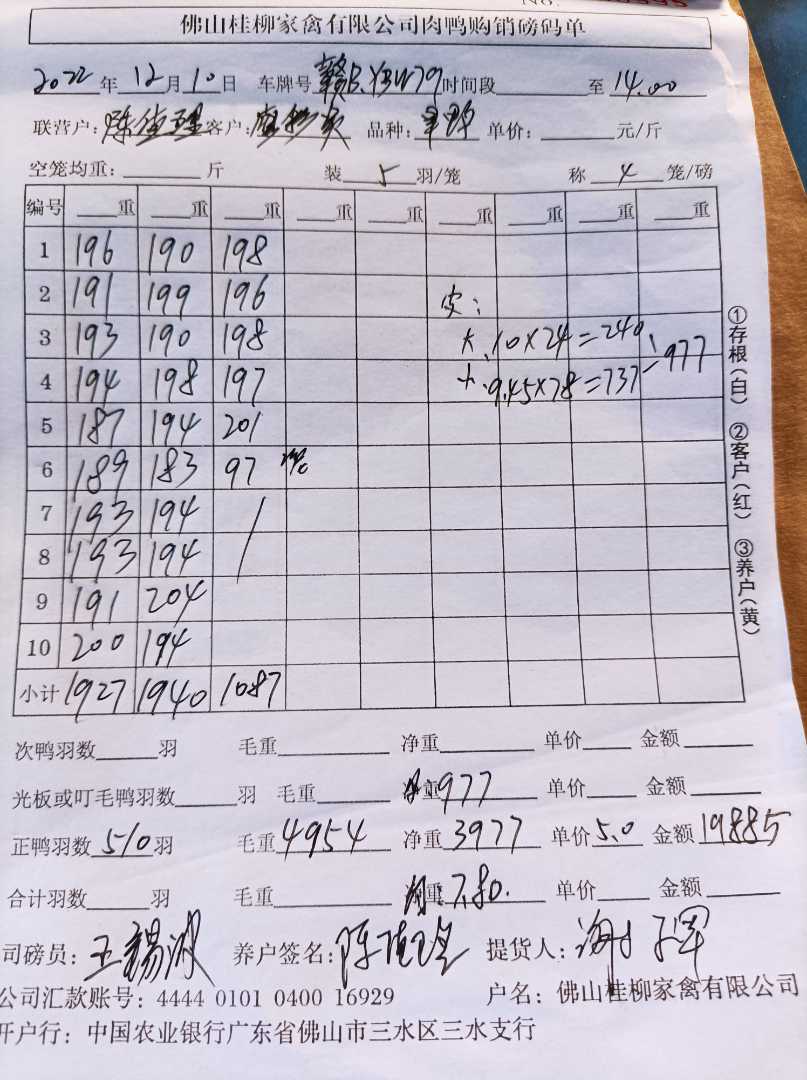 NO.
佛山桂柳家禽有限公司肉鸭购销磅码单
2022年 12月 10日 车牌号 赣B.YBW79 时间段 至 14.00
联营户: 客户: 品种: 单价: 元/斤
空笼均重: 斤 装 5 羽/笼 称 4 笼/磅
编号 重 重 重 重 重 重 重 重 重
1 196 190 198
2 191 199 196 皮:
3 193 190 198 大.10×24=240
4 194 198 197 9.45×78=737 =977
5 187 194 201
6 189 183 97
7 193 194 /
8 193 194 /
9 191 204
10 200 194
小计 1927 1940 1087
①存根(白) ②客户(红) ③养户(黄)
次鸭羽数 羽 毛重 净重 单价 金额
光板或叮毛鸭羽数 羽 毛重 重 977 单价 金额
正鸭羽数 510 羽 毛重 4954 净重 3977 单价 5.0 金额 19885
合计羽数 羽 毛重 重 7.80. 单价 金额
司磅员: 王锡波 养户签名: 提货人:
公司汇款账号: 4444 0101 0400 16929 户名: 佛山桂柳家禽有限公司
开户行: 中国农业银行广东省佛山市三水区三水支行